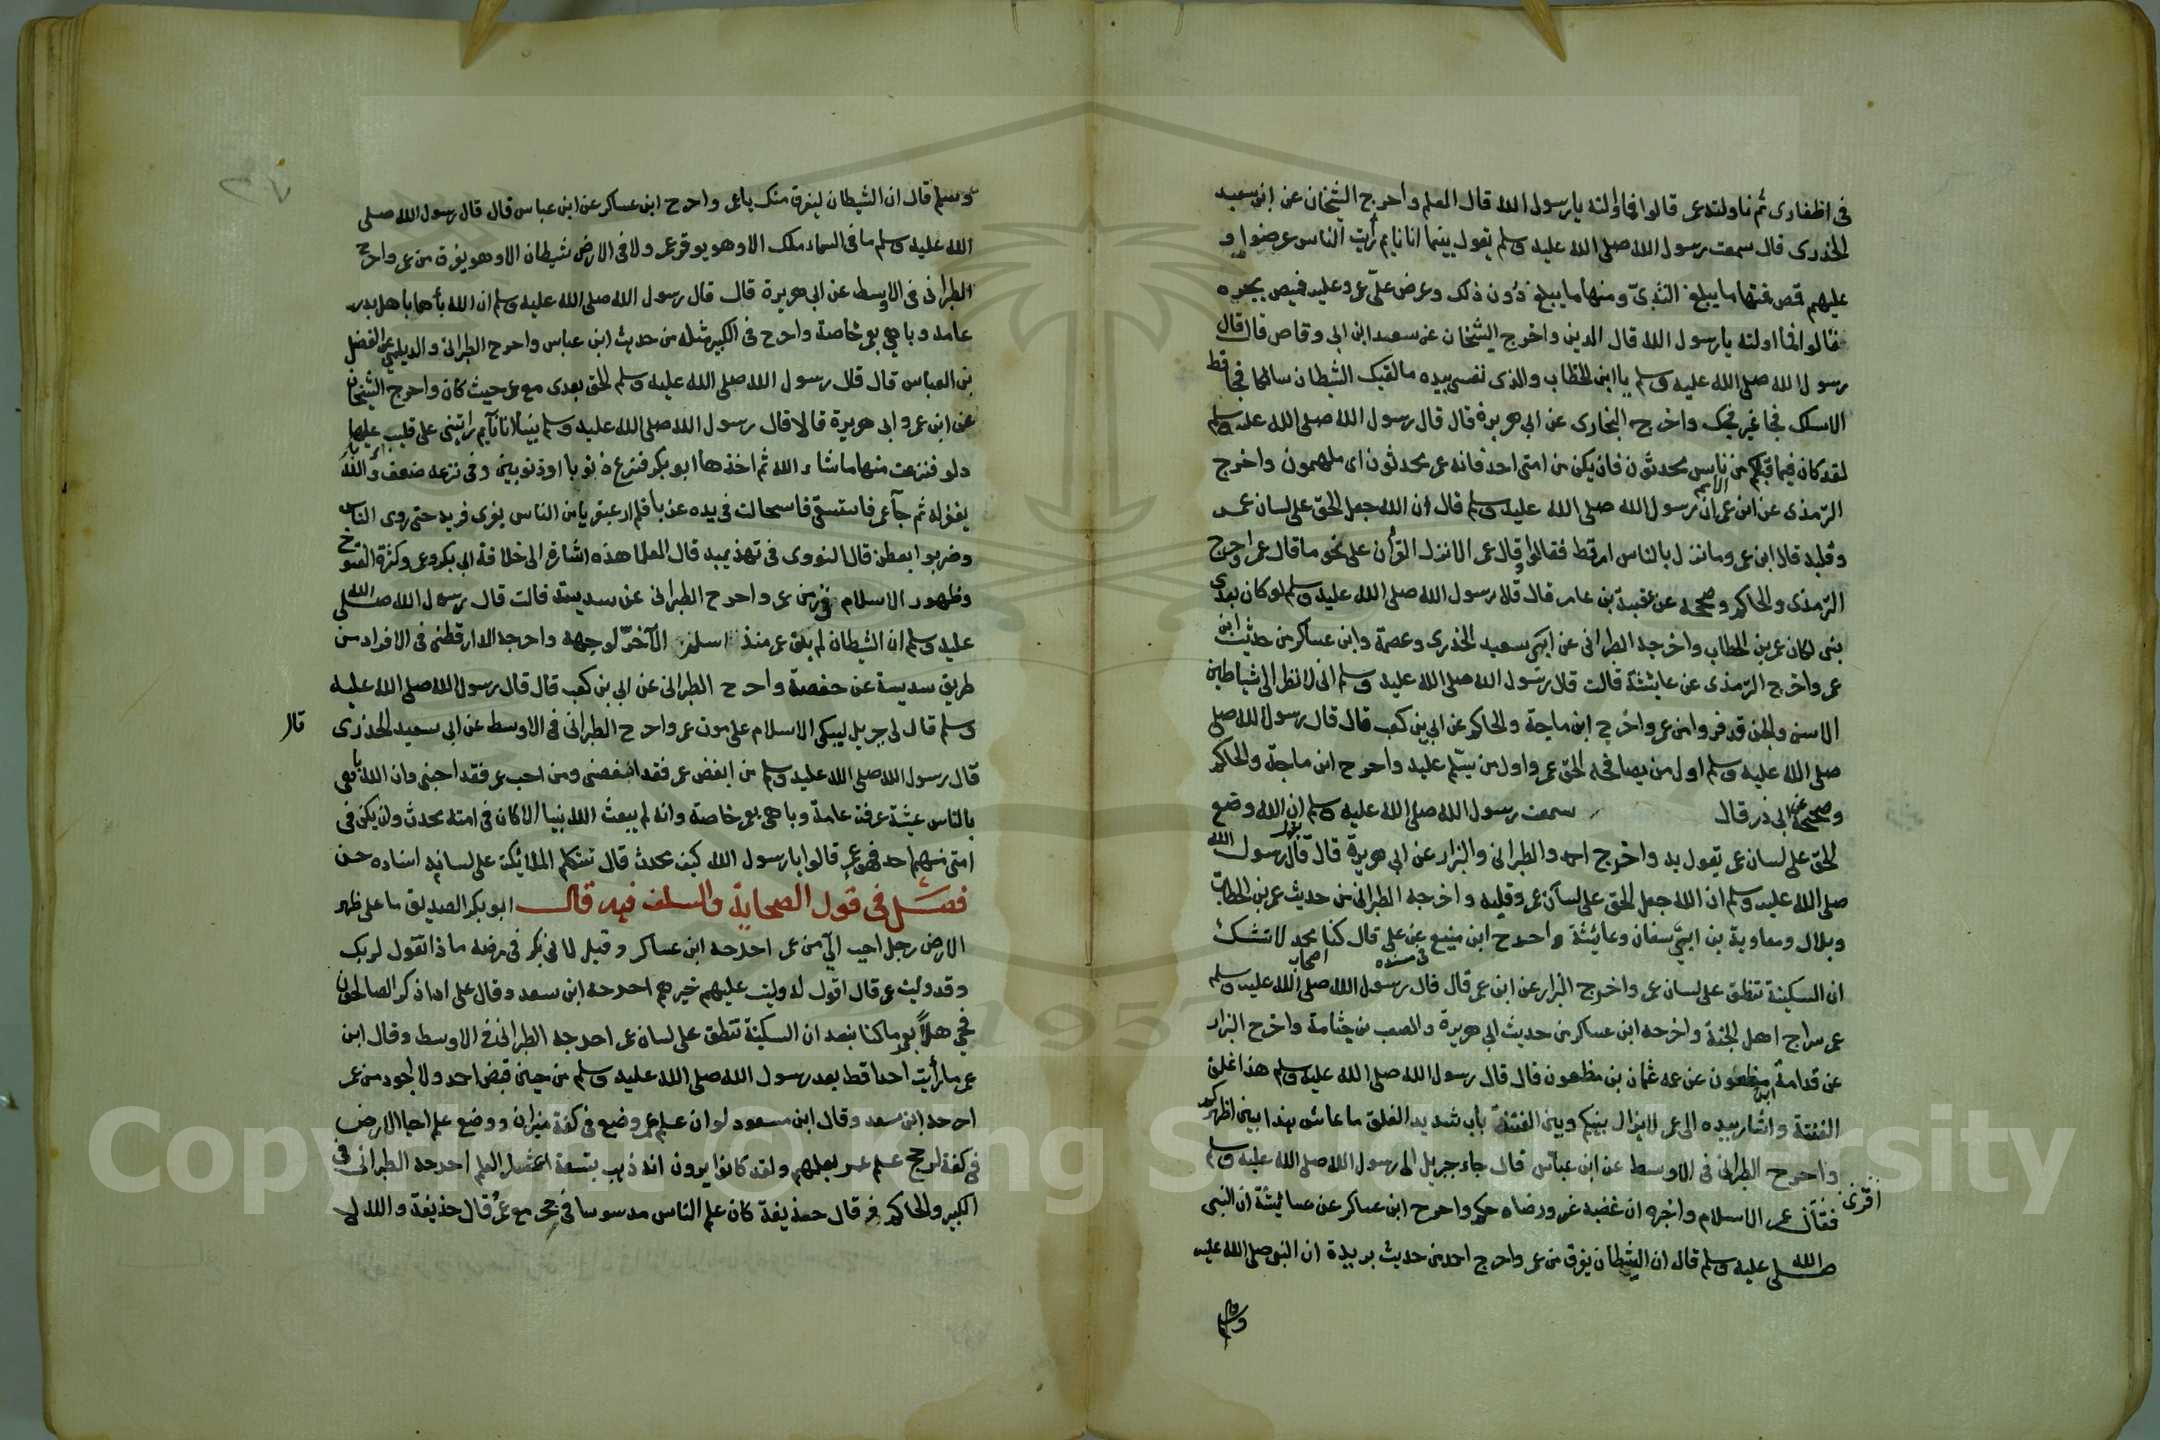 في اظفارى ثم ناولته عمر قالوا فما اولته يا رسول الله قال العلم واخرج الشيخان عن ابى سعيد
الخدرى قال سمعت رسول الله صلى الله عليه وسلم يقول بينما انا نايم رأيت الناس عرضوا
عليهم قمص فمنها ما يبلغ الثدى ومنها ما يبلغ دون ذلك وعرض علىّ عمر وعليه قميص يجره
قالوا فما اولته يا رسول الله قال الدين واخرج الشيخان عن سعيد ابن ابى وقاص قال قال
رسول الله صلى الله عليه وسلم يا ابن الخطاب والذى نفسى بيده ما لقيك الشطان سالكا فجا قط
الا سلك فجا غير فجك واخرج البخارى عن ابى هريرة قال قال رسول الله صلى الله عليه وسلم
لقد كان فيما قبلكم من الامم ناس محدثون فان يكن من امتى احد فانه عمر محدثون اى ملهمون واخرج
الترمذى عن ابن عمر ان رسول الله صلى الله عليه وسلم قال ان الله جعل الحق على لسان عمر
وقلبه قال ابن عمر وما نزل بالناس امر قط فقالوا وقال عمر الا نزل القرأن على نحو ما قال عمر واخرج
الترمذى والحاكم وصححه عن عقبة بن عامر قال قال رسول الله صلى الله عليه وسلم لو كان بعدى
نبى لكان عمر بن الخطاب واخرجه الطبرانى عن ابى سعيد الخدرى وعصمة وابن عساكر من حديث ابن
عمر واخرج الترمذى عن عايشة قالت قال رسول الله صلى الله عليه وسلم انى لانظر الى شياطين
الانس والجن قد فروا من عمر واخرج ابن ماجة والحاكم عن ابى بن كعب قال قال رسول الله صلى
صلى الله عليه وسلم اول من يصافحه الحق عمر واول من يسلم عليه واخرج ابن ماجة والحاكم
وصححه عن ابى ذر قال سمعت رسول الله صلى الله عليه وسلم ان الله وضع
الحق على لسان عمر يقول به واخرج احمد والطبرانى والبزار عن ابى هريرة قال قال رسول الله
صلى الله عليه وسلم ان الله جعل الحق على لسان عمر وقلبه واخرجه الطبرانى من حديث عمر بن الخطاب
وبلال ومعاوية بن ابى سفان وعائشة واخرج ابن منيع فى مسنده عن على قال كنا اصحاب محمد لا نشك
ان السكينة تنطق على لسان عمر واخرج البزار عن ابن عمر قال قال رسول الله صلى الله عليه وسلم
عمر سراج اهل الجنة واخرجه ابن عساكر من حديث ابى هريرة والصعب بن جثامة واخرج البزار
عن قدامة ابن مظعون عن عمه عثمان بن مظعون قال قال رسول الله صلى الله عليه وسلم هذا غلق
الفتنة واشار بيده الى عمر لا يزال بينكم وبين الفتنة باب شديد الغلق ما عاش هذا بين اظهركم
واخرج الطبرانى فى الاوسط عن ابن عباس قال جاء جبريل الى رسول الله صلى الله عليه وسلم
فقال اقرئ عمر الاسلام واخبره ان غضبه عز ورضاه حكم واخرج ابن عساكر عن عائشة ان النبى
صلى الله عليه وسلم قال ان الشيطان يفرق من عمر واخرج احمد من حديث بريدة ان النبى صلى الله عليه
وسلم قال ان الشيطان ليفرق منك يا عمر واخرج ابن عساكر عن ابن عباس قال قال رسول الله صلى
الله عليه وسلم ما فى السماء ملك الا وهو يوقر عمر ولا فى الارض شيطان الا وهو يفرق من عمر واخرج
الطبرانى فى الاوسط عن ابى هريرة قال قال رسول الله صلى الله عليه وسلم ان الله باها باهل بدر
عامه وباهى بعمر خاصة واخرج فى الكبير مثله من حديث ابن عباس واخرج الطبرانى والديلمى عن الفضل
بن العباس قال قال رسول الله صلى الله عليه وسلم الحق بعدى مع عمر حيث كان واخرج الشيخان
عن ابن عمر وابى هريرة قالا قال رسول الله صلى الله عليه وسلم بينا انا نايم رايتنى على قليب عليها
دلو فنزعت منها ما شاء الله ثم اخذها ابو بكر فنزع ذنوبا او ذنوبين وفى نزعه ضعف والله
يغفر له ثم جآ عمر فاستسقى فاستحالت فى يده غربا فلم ار عبقريا من الناس يفرى فريه حتى روى الناس
وضربوا بعطن قال النووى فى تهذيبه قال العلما هذه اشارة الى خلافة ابى بكر وعمر وكثرة الفتوح
وظهور الاسلام فى زمن عمر واخرج الطبرانى عن سديسة قالت قال رسول الله صلى الله
عليه وسلم ان الشيطان لم يلق عمر منذ اسلم الا خرّ لوجهه واخرجه الدارقطنى فى الافراد من
طريق سديسة عن حفصة واخرج الطبرانى عن ابى بن كعب قال قال رسول الله صلى الله عليه
وسلم قال لى جبريل ليبكى الاسلام على موت عمر واخرج الطبرانى فى الاوسط عن ابى سعيد الخدرى
قال
قال رسول الله صلى الله عليه وسلم من ابغض عمر فقد ابغضنى ومن احب عمر فقد احبنى وان الله باهى
بالناس عشية عرفة عامة وباهى بعمر خاصة وانه لم يبعث الله نبيا الا كان فى امته محدث وان يكن فى
امتى منهم احد فهو عمر قالوا يا رسول الله كيف محدث قال تتكلم الملائكة على لسانه اسناده حسن
فصل فى قول الصحابة والسلف فيه قال ابو بكر الصديق ما على ظهر
الارض رجل احب الىّ من عمر اخرجه ابن عساكر وقيل لابى بكر فى مرضه ماذا تقول لربك
وقد وليت عمر قال اقول له وليت عليهم خيرهم اخرجه ابن سعد وقال على اذا ذكر الصالحون
فحى هلا بعمر ما كنا نبعد ان السكينة تنطق على لسان عمر اخرجه الطبرانى فى الاوسط وقال ابن
عمر ما رأيت احدا قط بعد رسول الله صلى الله عليه وسلم من حين قبض احد ولا اجود من عمر
اخرجه ابن سعد وقال ابن مسعود لو ان علم عمر وضع فى كفة ميزان ووضع علم احيا الارض
فى كفة لرجح علم عمر بعلمهم ولقد كانوا يرون انه ذهب بتسعة اعشار العلم اخرجه الطبرانى فى
الكبير والحاكم وقال حذيفة كان علم الناس مدسوسا فى حجر مع عمر وقال حذيفة والله لى
Copyright © King Saud University
1957